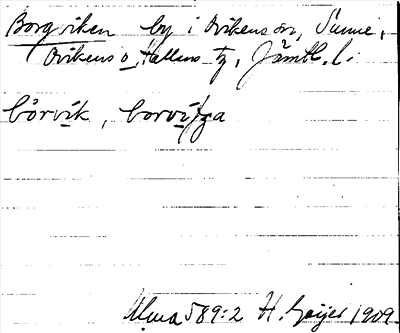 Borgviken by i Ovikens sn, Sunne,
Ovikens o Hallens tg, Jämtl. l.
börvik, borvika
Ulma 589:2 H. Geijer 1909